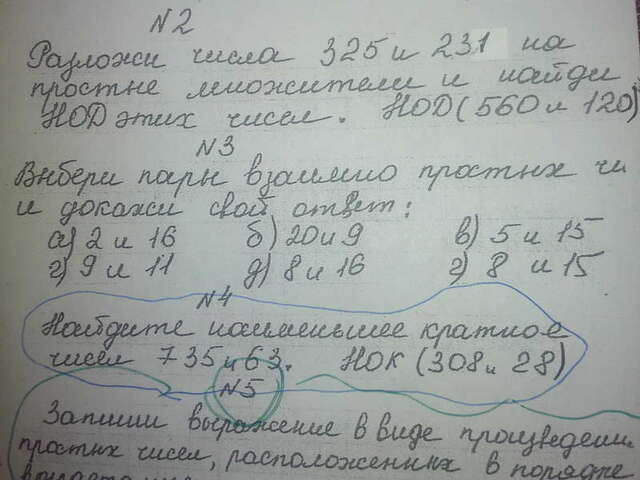 N2
Разложи числа 325 и 231 на
простые множители и найди
НОД этих чисел. НОД(560 и 120)
N3
Выбери пары взаимно простых чи
и докажи свой ответ:
а) 2 и 16 б) 20 и 9 в) 5 и 15
г) 9 и 11 д) 8 и 16 г) 8 и 15
N4
Найдите наименьшее кратное
чисел 735 и 63. НОК (308 и 28)
N5
Запиши выражение в виде произведени
простых чисел, расположенных в порядке